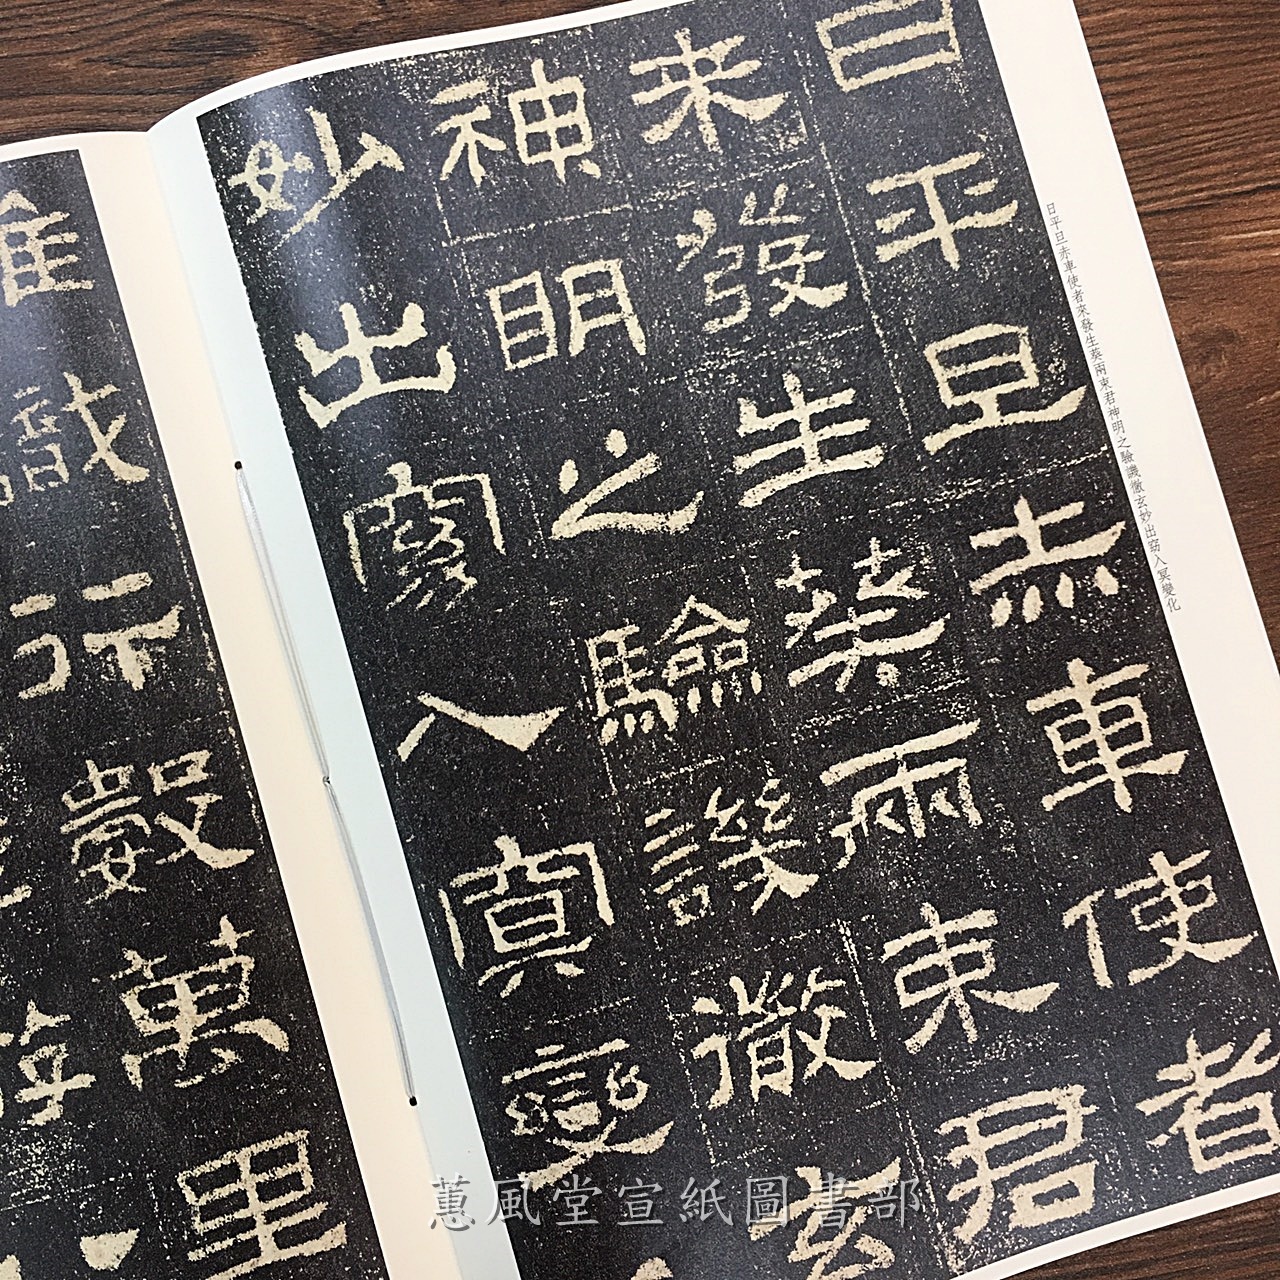 日平旦赤車使者來發生葵兩束君神明之驗譏徹玄妙出窈入冥變化
日平旦赤車使者
来發生葵兩束君
神明之驗譏徹玄
妙出窈入冥變
識行數萬里
蕙風堂宣紙圖書部